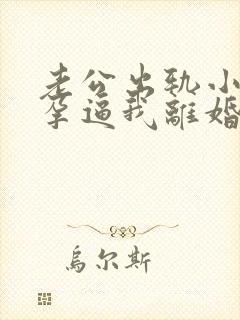 老公出轨小
孕逼我離婚
烏尔斯